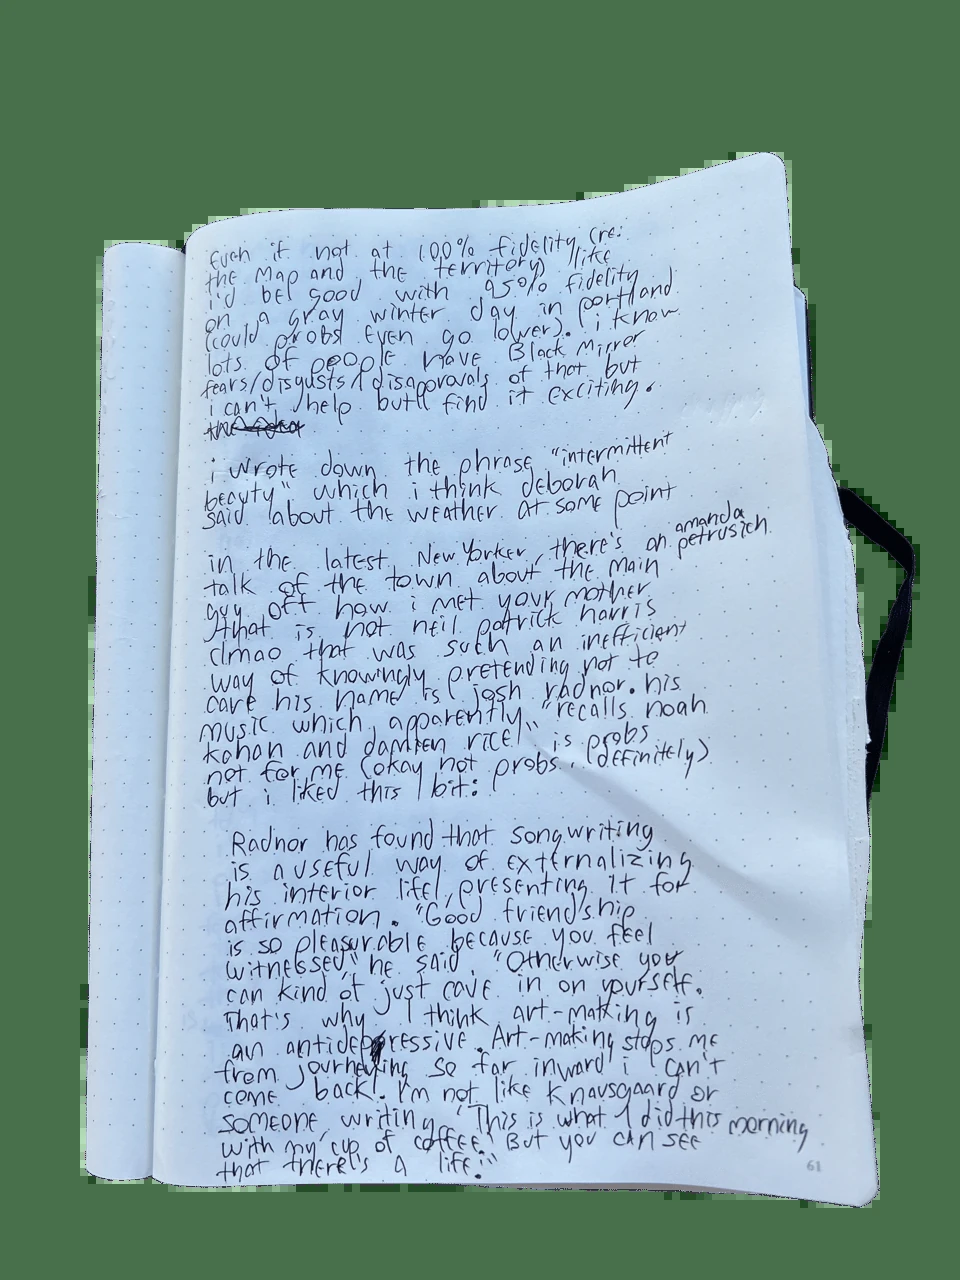 Even if not at 100% fidelity (re:
the map and the territory) like
i'd be good with 95% fidelity
on a gray winter day in portland
(could probs even go lower). i know
lots of people have Black Mirror
fears/disgusts/disapprovals of that but
i can't help but find it exciting.
i wrote down the phrase "intermittent
beauty" which i think deborah
said about the weather at some point
in the latest New Yorker, there's an amanda petrusich
talk of the town about the main
guy off how i met your mother
that is not neil patrick harris
(lmao that was such an inefficient
way of knowingly pretending not to
care his name is josh radnor. his
music which, apparently, "recalls noah
kahan and damien rice", is probs
not for me (okay not probs, definitely)
but i liked this bit:
Radnor has found that songwriting
is a useful way of externalizing
his interior life, presenting it for
affirmation. "Good friendship
is so pleasurable because you feel
witnessed," he said, "Otherwise you
can kind of just cave in on yourself.
That's why I think art-making is
an antidepressive. Art-making stops me
from journeying so far inward i can't
come back. I'm not like Knausgaard or
someone, writing, 'This is what I did this morning
with my cup of coffee.' But you can see
that there's a life."
61